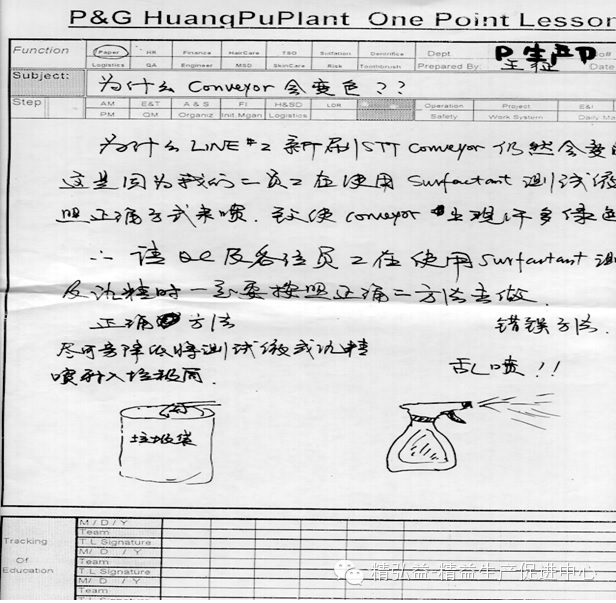 P&G HuangPuPlant One Point Lesson
Function Paper HR Finance HairCare TSD Surfation Dentrifice Dept. P生产部
Logistics QA Engineer MSD SkinCare Risk Toothbrush Prepared By: Date
Subject: 为什么 Conveyor 会变色??
Step AM E&T A & S FI H&SD LDR Operation Project E&I
PM QM Organiz Init.Mgan Logistics Safety Work System Daily Ma
为什么 LINE #2 新刷 STT conveyor 仍然会变
这是因为我们的员工在使用 Surfactant 测试液
照正确方式来喷. 致使 conveyor 出现许多绿色
∴ 请 QC 及各位员工在使用 Surfactant 测
及洗精时一定要按照正确方法去做.
正确方法 错误方法.
尽可能降低将测试液或洗精 乱喷!!
喷射入垃圾筒.
垃圾袋
Tracking Of Education
M / D / Y
Team
T.L Signature
M / D / Y
Team
T.L Signature
M / D / Y
Team
精弘益-精益生产促进中心